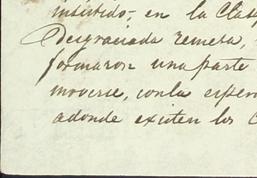 insistido, en la Clas
Desgraciada remesa,
formaron una parte
moverse, con la esper
adonde existen los C